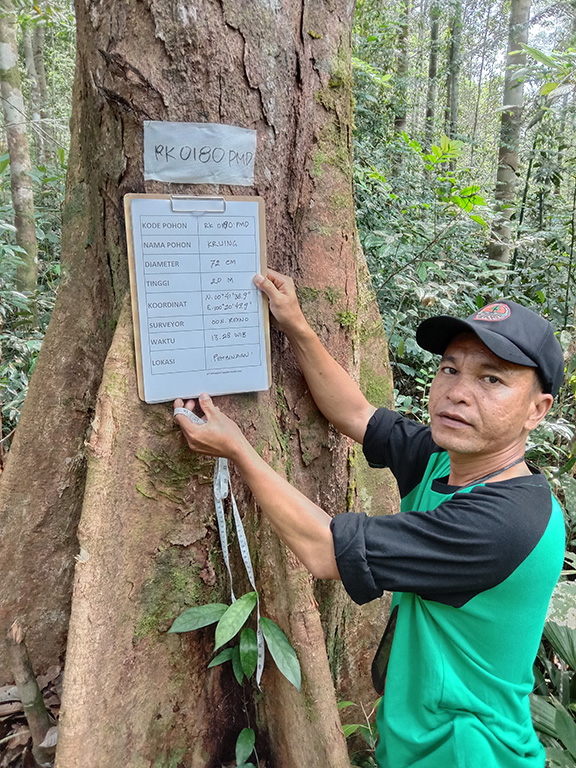 RK 0180 PMD
KODE POHON RK 0180 PMD
NAMA POHON KRUING
DIAMETER 72 CM
TINGGI 20 M
KOORDINAT N: 00°41'38,9"
E: 100°20'48,9"
SURVEYOR DON
WAKTU 13.28 WIB
LOKASI PEMBINAAN